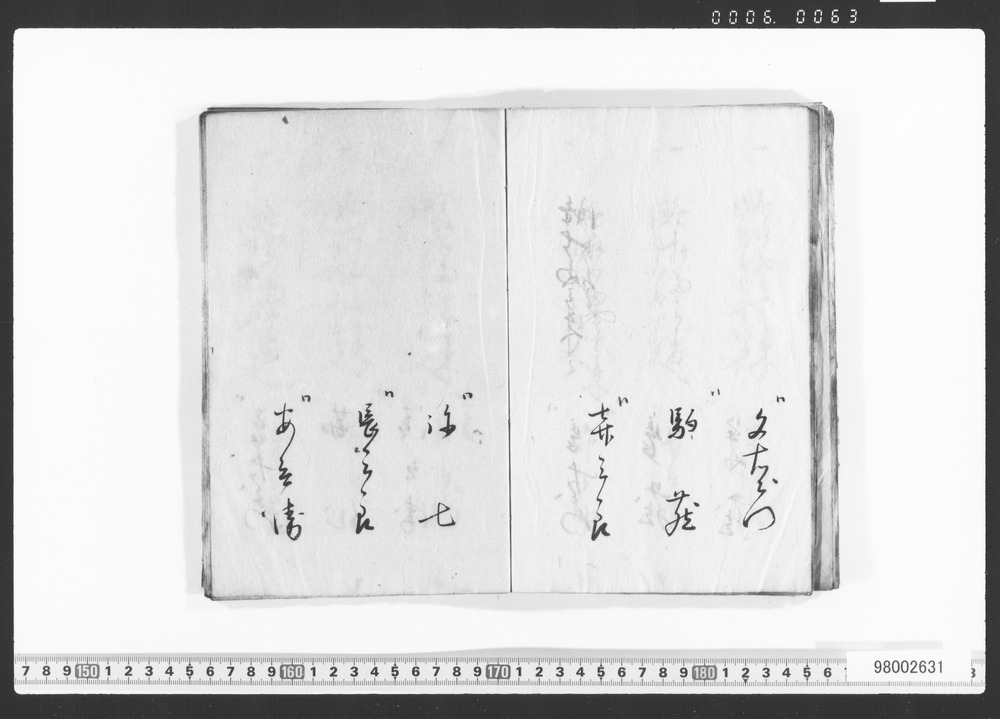 0006. 0063
〃 文右衛門
〃 駒蔵
〃
〃 弥七
〃 長三郎
〃 安兵衛
7 8 9 150 1 2 3 4 5 6 7 8 9 160 1 2 3 4 5 6 7 8 9 170 1 2 3 4 5 6 7 8 9 180 1 2 3 4 5 6
98002631